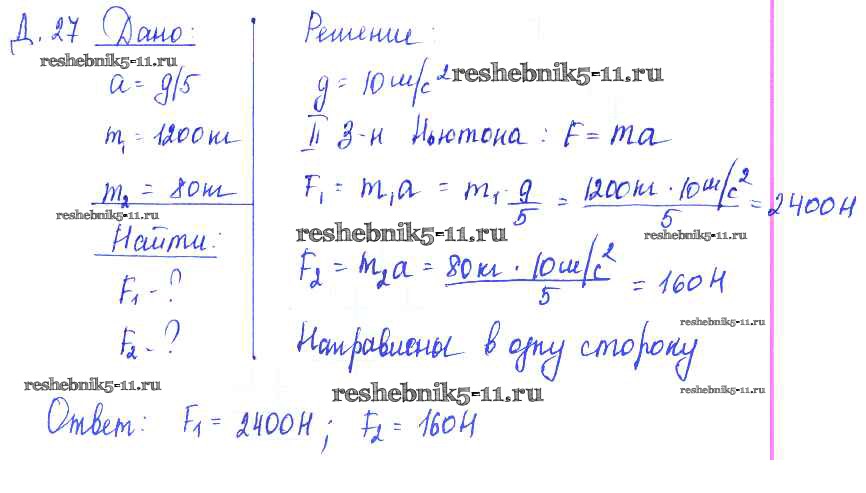 Д. 27 Дано:
reshebnik5-11.ru
a = g/5
m₁ = 1200кг
m₂ = 80кг
reshebnik5-11.ru
Найти:
F₁ - ?
F₂ - ?
reshebnik5-11.ru
Решение:
g = 10 м/с² reshebnik5-11.ru
II З-н Ньютона : F = ma
F₁ = m₁a = m₁ · g/5 = 1200кг · 10 м/с² / 5 = 2400Н
reshebnik5-11.ru reshebnik5-11.ru
F₂ = m₂a = 80кг · 10 м/с² / 5 = 160Н
reshebnik5-11.ru
Направлены в одну сторону
reshebnik5-11.ru reshebnik5-11.ru
Ответ: F₁ = 2400Н ; F₂ = 160Н